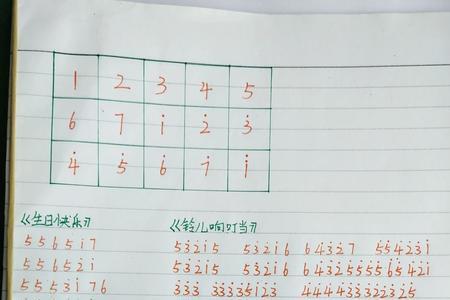 1 2 3 4 5
6 7 i 2̇ 3̇
4̇ 5̇ 6̇ 7̇ i
《生日快乐》
5 5 6 5 i 7
5 5 6 5 2̇ i
5 5 5̇ 3̇ i 7 6
《铃儿响叮当》
5 3̇ 2̇ i 5 5 3̇ 2̇ i 6 6 4̇ 3̇ 2̇ 7 5̇ 5̇ 4̇ 2̇ 3̇ i
5 3̇ 2̇ i 5 5 3̇ 2̇ i 6 6 4̇ 3̇ 2̇ 5̇ 5̇ 5̇ 5̇ 6̇ 5̇ 4̇ 2̇ i
3̇ 3̇ 3̇ 3̇ 3̇ 3̇ 3̇ 5̇ i 2̇ 3̇ 4̇ 4̇ 4̇ 4̇ 3̇ 3̇ 2̇ 2̇ 3̇ 2̇ 5̇